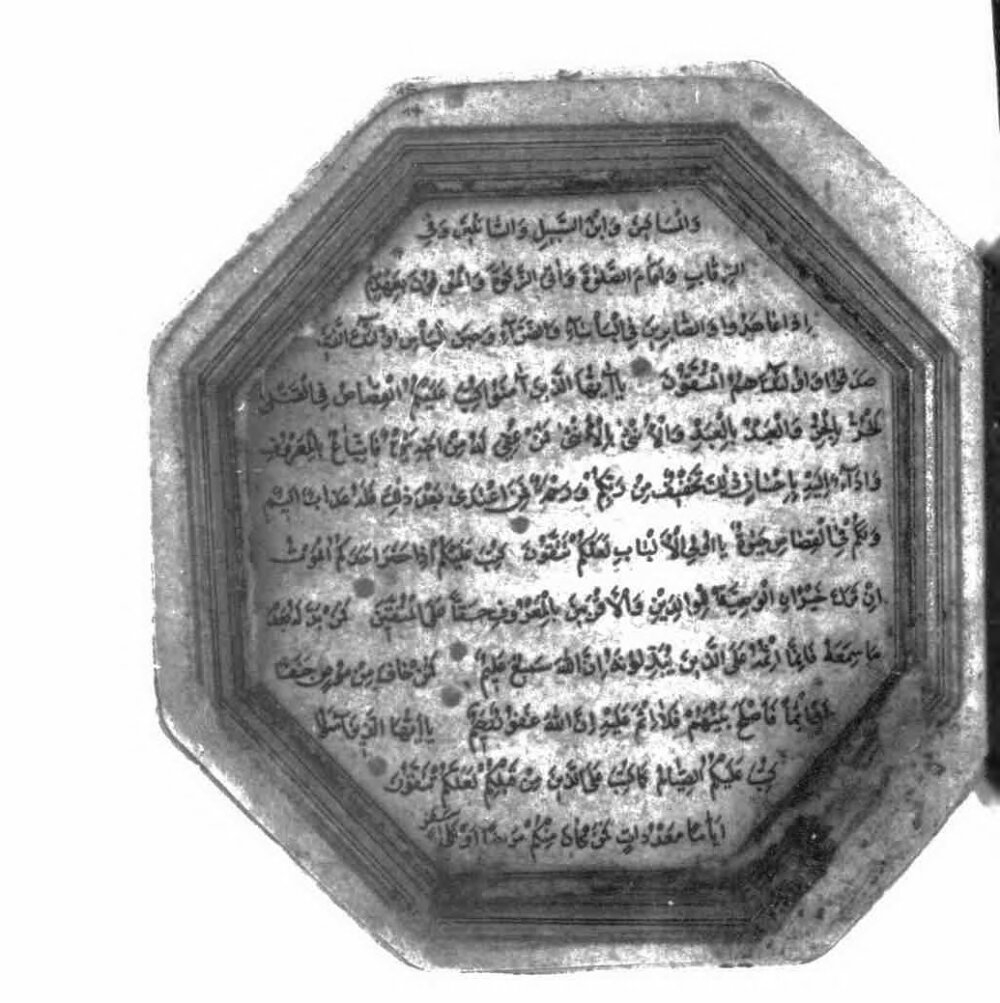 وَالْمَسَاكِينَ وَابْنَ السَّبِيلِ وَالسَّائِلِينَ وَفِي
الرِّقَابِ وَاَقَامَ الصَّلٰوةَ وَاٰتَى الزَّكٰوةَ وَالْمُوفُونَ بِعَهْدِهِمْ
اِذَا عَاهَدُوا وَالصَّابِرِينَ فِي الْبَأْسَاءِ وَالضَّرَّاءِ وَحِينَ الْبَأْسِ اُولٰئِكَ الَّذِينَ
صَدَقُوا وَاُولٰئِكَ هُمُ الْمُتَّقُونَ يَا اَيُّهَا الَّذِينَ اٰمَنُوا كُتِبَ عَلَيْكُمُ الْقِصَاصُ فِي الْقَتْلٰى
اَلْحُرُّ بِالْحُرِّ وَالْعَبْدُ بِالْعَبْدِ وَالْاُنْثٰى بِالْاُنْثٰى فَمَنْ عُفِيَ لَهُ مِنْ اَخِيهِ شَيْءٌ فَاتِّبَاعٌ بِالْمَعْرُوفِ
وَاَدَاءٌ اِلَيْهِ بِاِحْسَانٍ ذٰلِكَ تَخْفِيفٌ مِنْ رَبِّكُمْ وَرَحْمَةٌ فَمَنِ اعْتَدٰى بَعْدَ ذٰلِكَ فَلَهُ عَذَابٌ اَلِيمٌ
وَلَكُمْ فِي الْقِصَاصِ حَيٰوةٌ يَا اُولِي الْاَلْبَابِ لَعَلَّكُمْ تَتَّقُونَ كُتِبَ عَلَيْكُمْ اِذَا حَضَرَ اَحَدَكُمُ الْمَوْتُ
اِنْ تَرَكَ خَيْرًا الْوَصِيَّةُ لِلْوَالِدَيْنِ وَالْاَقْرَبِينَ بِالْمَعْرُوفِ حَقًّا عَلَى الْمُتَّقِينَ فَمَنْ بَدَّلَهُ بَعْدَ
مَا سَمِعَهُ فَاِنَّمَا اِثْمُهُ عَلَى الَّذِينَ يُبَدِّلُونَهُ اِنَّ اللّٰهَ سَمِيعٌ عَلِيمٌ فَمَنْ خَافَ مِنْ مُوصٍ جَنَفًا
اَوْ اِثْمًا فَاَصْلَحَ بَيْنَهُمْ فَلَا اِثْمَ عَلَيْهِ اِنَّ اللّٰهَ غَفُورٌ رَحِيمٌ يَا اَيُّهَا الَّذِينَ اٰمَنُوا
كُتِبَ عَلَيْكُمُ الصِّيَامُ كَمَا كُتِبَ عَلَى الَّذِينَ مِنْ قَبْلِكُمْ لَعَلَّكُمْ تَتَّقُونَ
اَيَّامًا مَعْدُودَاتٍ فَمَنْ كَانَ مِنْكُمْ مَرِيضًا اَوْ عَلٰى سَفَرٍ